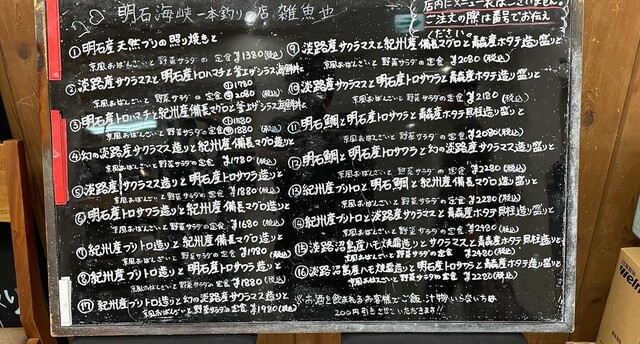 明石海峡一本釣りの店 雑魚や
店内にメニュー表はございません。
ご注文の際は番号でお伝え
ください。
① 明石産 天然ブリの照り焼きと
京風おばんざいと 野菜サラダの定食 ¥1380(税込)
② 淡路産サクラマスと明石産トロハマチと釜上ゲシラス海鮮丼と
京風おばんざいと 野菜サラダの定食 ¥1780
¥2080(税込)
③ 明石産トロハマチと紀州産備長マグロと釜上ゲシラス海鮮丼と
京風おばんざいと 野菜サラダの定食 ¥1580
¥1880(税込)
④ 幻の淡路産サクラマス造りと
京風おばんざいと 野菜サラダの定食 ¥1780(税込)
⑤ 淡路産サクラマス造りと明石産トロサワラ造りと
京風おばんざいと 野菜サラダの定食 ¥1880(税込)
⑥ 明石産トロサワラ造りと紀州産備長マグロ造りと
京風おばんざいと 野菜サラダの定食 ¥1680(税込)
⑦ 紀州産ブリトロ造りと紀州産備長マグロ造りと
京風おばんざいと 野菜サラダの定食 ¥1780(税込)
⑧ 紀州産ブリトロ造りと明石産トロサワラ造りと
京風おばんざいと 野菜サラダの定食 ¥1880(税込)
⑰ 紀州産ブリトロ造りと幻の淡路産サクラマス造りと
京風おばんざいと 野菜サラダの定食 ¥1980(税込)
⑨ 淡路産サクラマスと紀州産備長マグロと青森産ホタテ造り盛りと
京風おばんざいと 野菜サラダの定食 ¥2080(税込)
⑩ 淡路産サクラマスと明石産トロサワラと青森産ホタテ造り盛りと
京風おばんざいと 野菜サラダの定食 ¥2180(税込)
⑪ 明石鯛と明石産トロサワラと青森産ホタテ貝柱造り盛りと
京風おばんざいと 野菜サラダの定食 ¥2080(税込)
⑫ 明石鯛と明石産トロサワラと幻の淡路産サクラマス造り盛りと
京風おばんざいと 野菜サラダの定食 ¥2280(税込)
⑬ 紀州産ブリトロと明石鯛と紀州産備長マグロ造り盛りと
京風おばんざいと 野菜サラダの定食 ¥2280(税込)
⑭ 紀州産ブリトロと淡路産サクラマスと青森産ホタテ貝柱造り盛りと
京風おばんざいと 野菜サラダの定食 ¥2480(税込)
⑮ 淡路沼島産ハモ焼霜造りとサクラマスと青森産ホタテ造り盛りと
京風おばんざいと 野菜サラダの定食 ¥2480(税込)
⑯ 淡路沼島産ハモ焼霜造りと明石産トロサワラと青森産ホタテ造り盛りと
京風おばんざいと 野菜サラダの定食 ¥2280(税込)
※お酒を飲まれるお客様でご飯、汁物いらない方は
200円引きさせていただきます!!